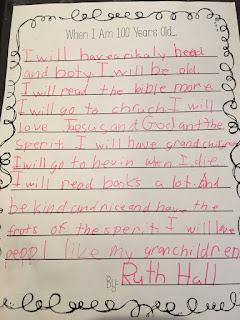 When I Am 100 Years Old...
I will have arikaly heed
and boty I will be old
I will read the bible more
I will go to chruch I will
love Jesus and God and the
sperit I will have grandchildren
I will go to hevin wen I die
I will read books a lot. And
be kind and nice and have the
frots of the sperit. I will love
pepp I like my granchildren
By: Ruth Hall